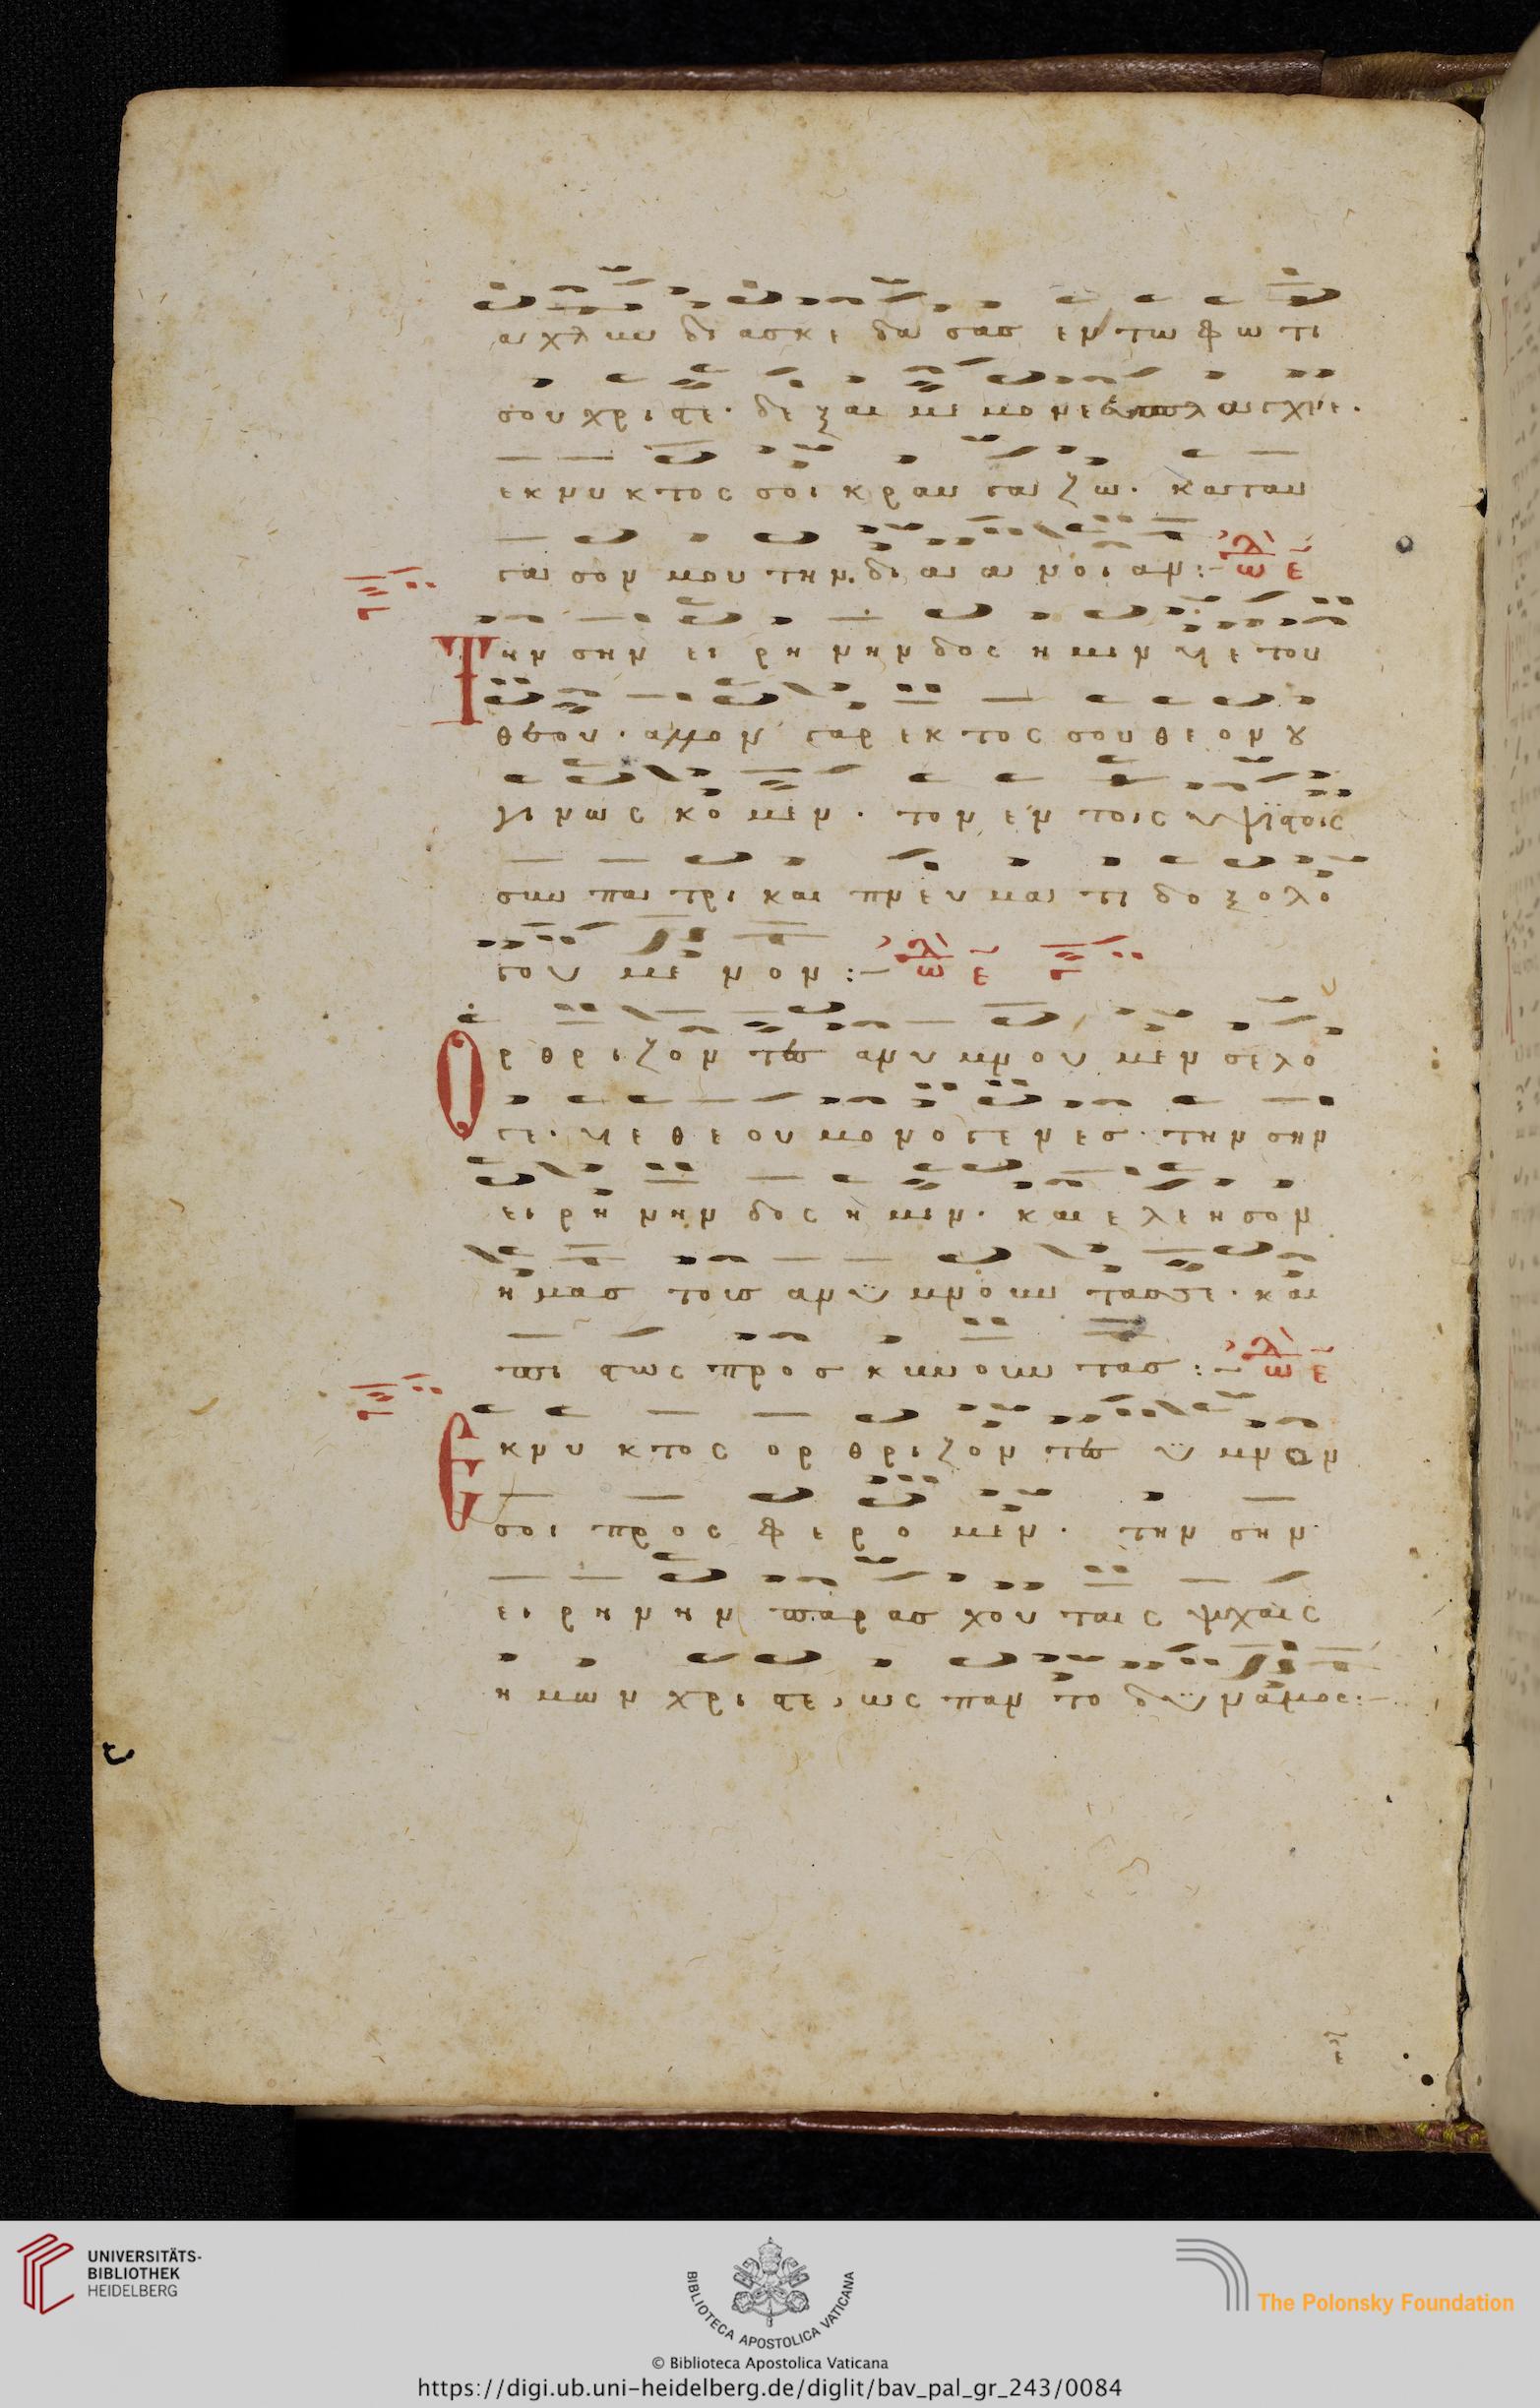 αχλυν διασκεδασας εν τω φωτι
σου χριστε. δεξαι με μονε
εκ νυκτος σοι κραυγαζω. καταυ
γασον μου την διανοιαν:-
Την σην ειρηνην δος ημιν υιε του
θεου. αλλον γαρ εκτος σου θεον ου
γινωσκομεν. τον εν τοις υψιστοις
συν πατρι και πνευματι δοξολο
γουμενον:-
Ορθριζοντων ανυμνουμεν σε λο
γε. υιε θεου μονογενες. την σην
ειρηνην δος ημιν. και ελεησον
ημας τους ανυμνουντας σε. και
πιστως προσκυνουντας:-
Εκ νυκτος ορθριζοντων υμνον
σοι προσφερομεν. την σην
ειρηνην παρασχου ταις ψυχαις
ημων χριστε, ως παντοδυναμος:-
UNIVERSITÄTS-
BIBLIOTHEK
HEIDELBERG
BIBLIOTECA APOSTOLICA VATICANA
The Polonsky Foundation
© Biblioteca Apostolica Vaticana
https://digi.ub.uni-heidelberg.de/diglit/bav_pal_gr_243/0084